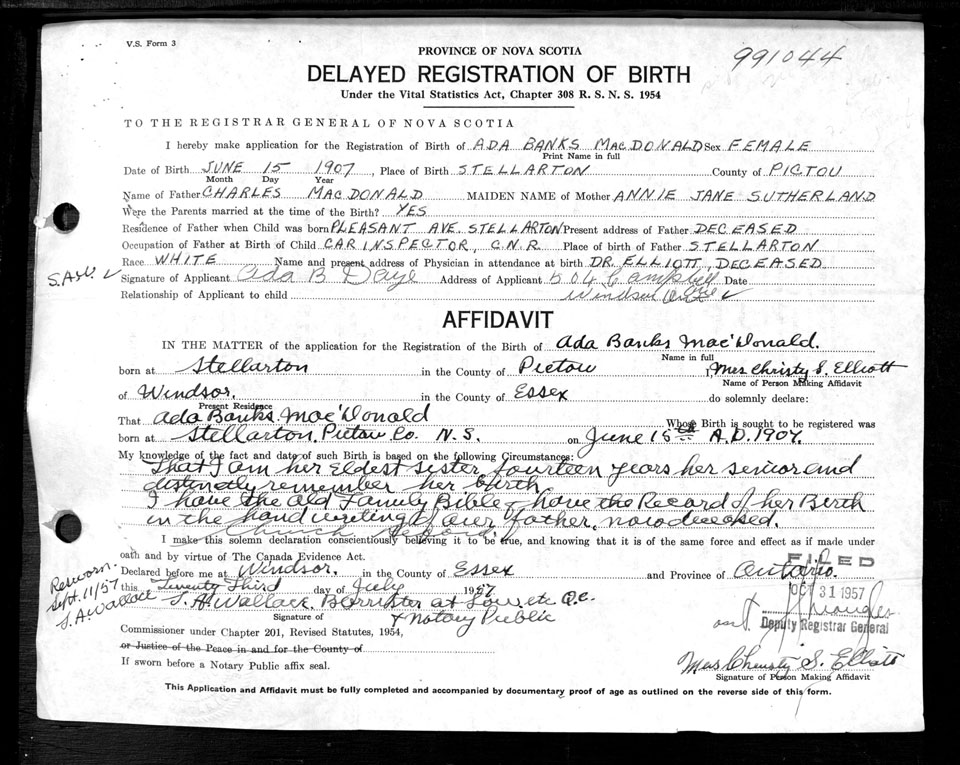 V.S. Form 3
PROVINCE OF NOVA SCOTIA
991044
DELAYED REGISTRATION OF BIRTH
Under the Vital Statistics Act, Chapter 308 R. S. N. S. 1954
TO THE REGISTRAR GENERAL OF NOVA SCOTIA
I hereby make application for the Registration of Birth of ADA BANKS MACDONALD Sex FEMALE
Print Name in full
Date of Birth JUNE 15 1907, Place of Birth STELLARTON County of PICTOU
Month Day Year
Name of Father CHARLES MACDONALD MAIDEN NAME of Mother ANNIE JANE SUTHERLAND
Were the Parents married at the time of the Birth? YES
Residence of Father when Child was born PLEASANT AVE. STELLARTON Present address of Father DECEASED
Occupation of Father at Birth of Child CAR INSPECTOR, C.N.R. Place of birth of Father STELLARTON
Race WHITE Name and present address of Physician in attendance at birth DR. ELLIOTT, DECEASED
Signature of Applicant Ada B Address of Applicant 504 Campbell Date
Relationship of Applicant to child Windsor
AFFIDAVIT
IN THE MATTER of the application for the Registration of the Birth of Ada Banks Mac'Donald.
Name in full
born at Stellarton in the County of Pictou I, Mrs Christy S. Elliott
Name of Person Making Affidavit
of Windsor. in the County of Essex do solemnly declare:
Present Residence
That Ada Banks Mac'Donald Whose Birth is sought to be registered was
born at Stellarton, Pictou Co. N.S. on June 15th A.D. 1907.
My knowledge of the fact and date of such Birth is based on the following Circumstances:
That I am her Eldest sister, fourteen years her senior and
distinctly remember her birth
I have the old Family Bible, have the Record of her Birth
in the hand writing of our father, now deceased.
Church Record.
I make this solemn declaration conscientiously believing it to be true, and knowing that it is of the same force and effect as if made under
oath and by virtue of The Canada Evidence Act.
FILED
Declared before me at Windsor. in the County of Essex and Province of Ontario.
Resworn.
Sept. 11/57
S.A. Wallace
this Twenty Third day of July 1957
OCT 31 1957
S. A. Wallace, Barrister at Law etc Q.C.
Signature of & Notary Public
Deputy Registrar General
Commissioner under Chapter 201, Revised Statutes, 1954,
or Justice of the Peace in and for the County of
If sworn before a Notary Public affix seal.
Mrs Christy S. Elliott
Signature of Person Making Affidavit
This Application and Affidavit must be fully completed and accompanied by documentary proof of age as outlined on the reverse side of this form.